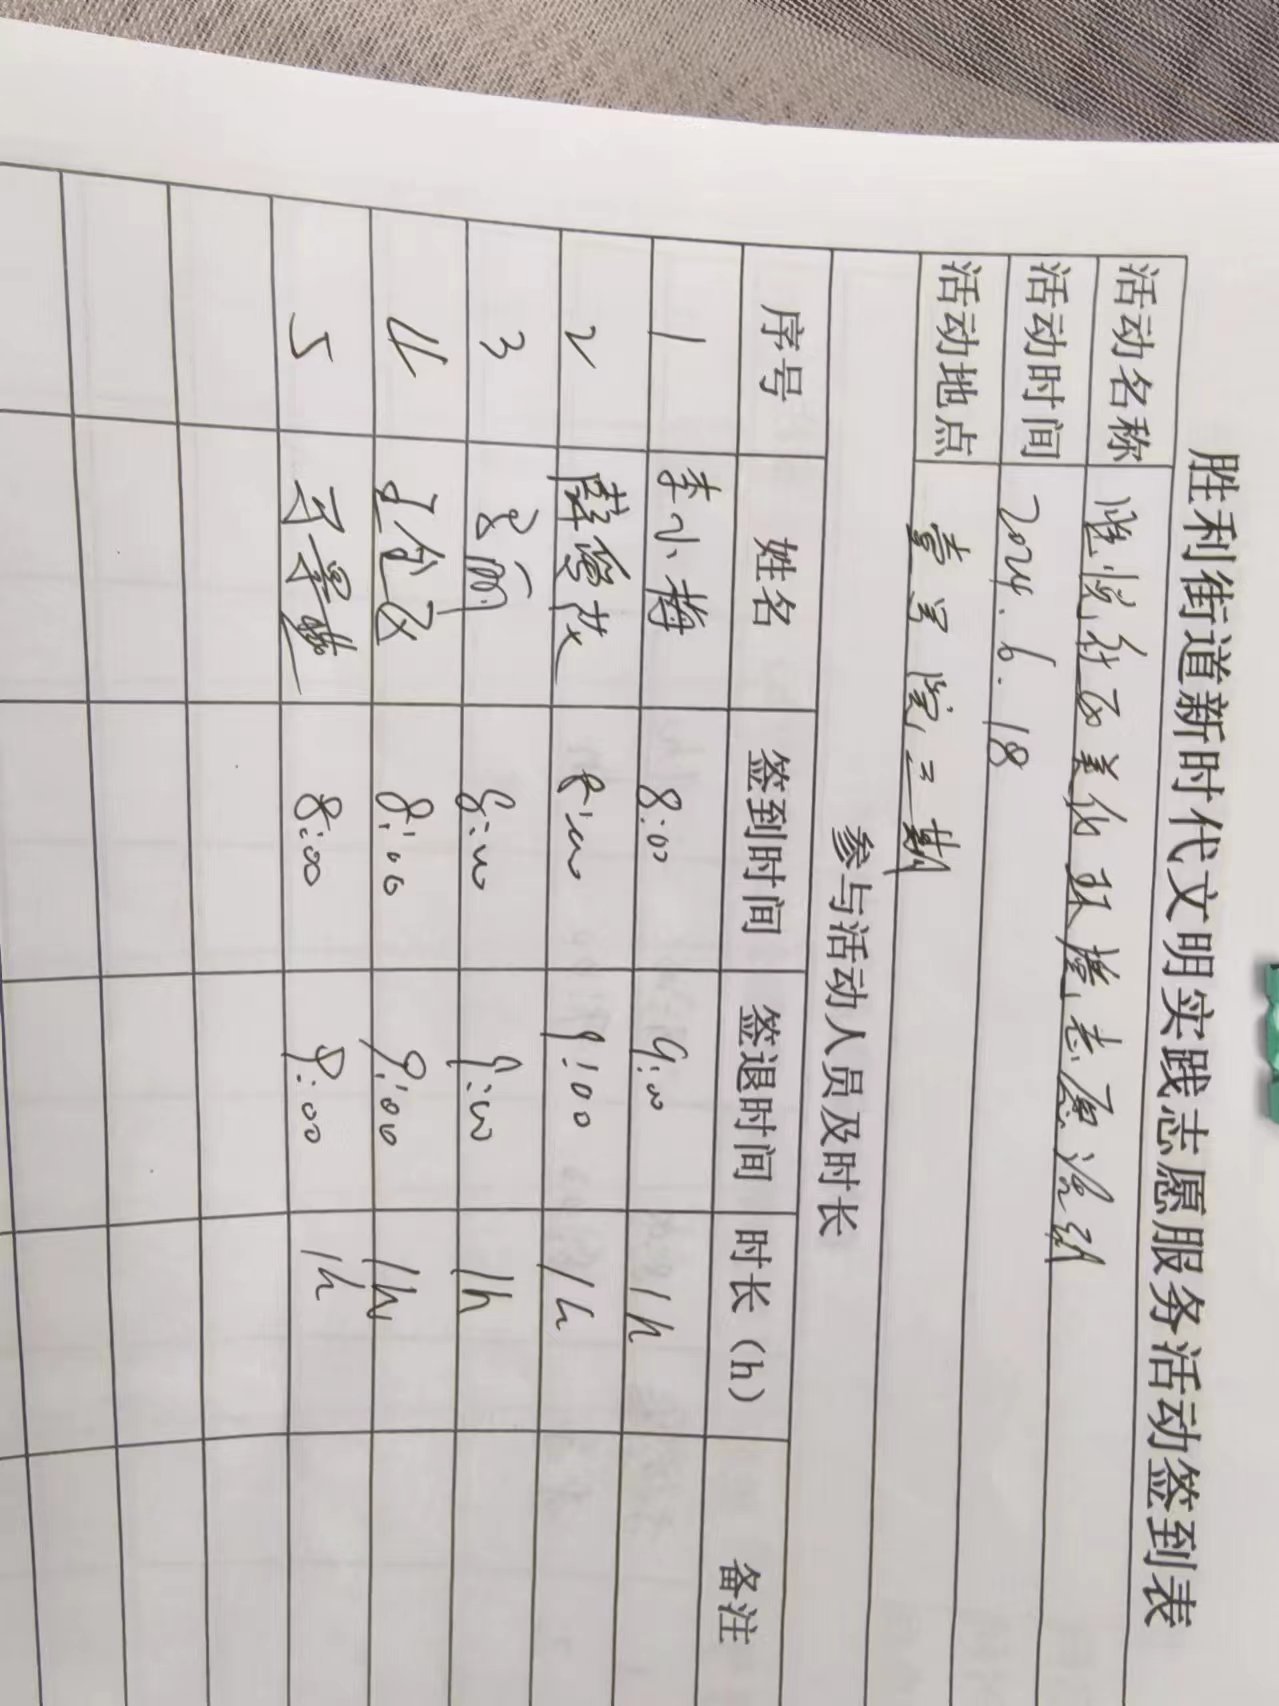 胜利街道新时代文明实践志愿服务活动签到表
活动名称 胜悦社区美化环境志愿活动
活动时间 2024.6.18
活动地点 壹号院二期
参与活动人员及时长
序号 姓名 签到时间 签退时间 时长(h) 备注
1 李小梅 8:00 9:00 1h
2 薛 8:00 9:00 1h
3 8:00 9:00 1h
4 8:00 9:00 1h
5 8:00 9:00 1h